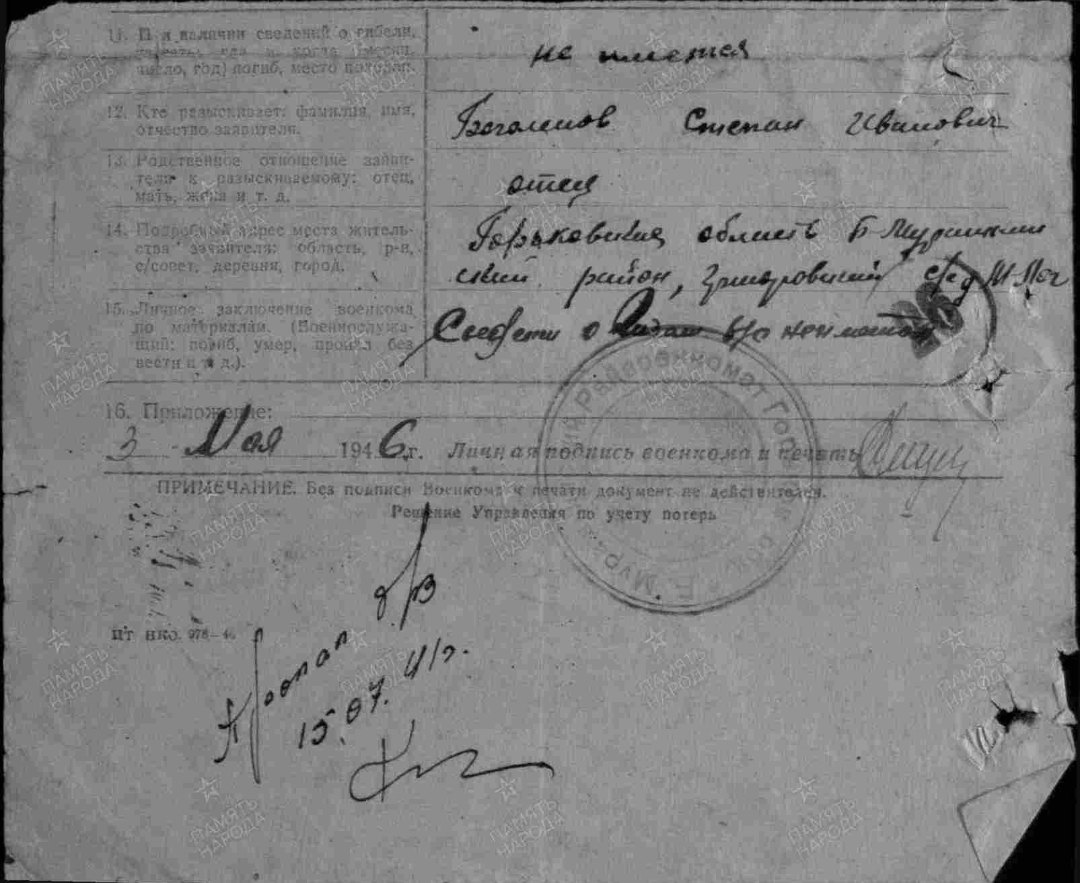 11. При наличии сведений о гибели,
указать, где и когда (месяц,
число, год) погиб, место похорон.
не имеется
12. Кто разыскивает: фамилия, имя,
отчество заявителя.
Степан Иванович
13. Родственное отношение заяви-
теля к разыскиваемому: отец,
мать, жена и т. д.
отец
14. Подробный адрес места житель-
ства заявителя: область, р-н,
с/совет, деревня, город.
Горьковская область Б-
ский район,
15. Личное заключение военкома
по материалам. (Военнослужа-
щий: погиб, умер, пропал без
вести и т. д.).
16. Приложение:
3 Мая 1946 г. Личная подпись военкома и печать
ПРИМЕЧАНИЕ. Без подписи Военкома и печати документ не действителен.
Решение Управления по учету потерь
Пропал б/в
15.07.41г.
ПАМЯТЬ НАРОДА